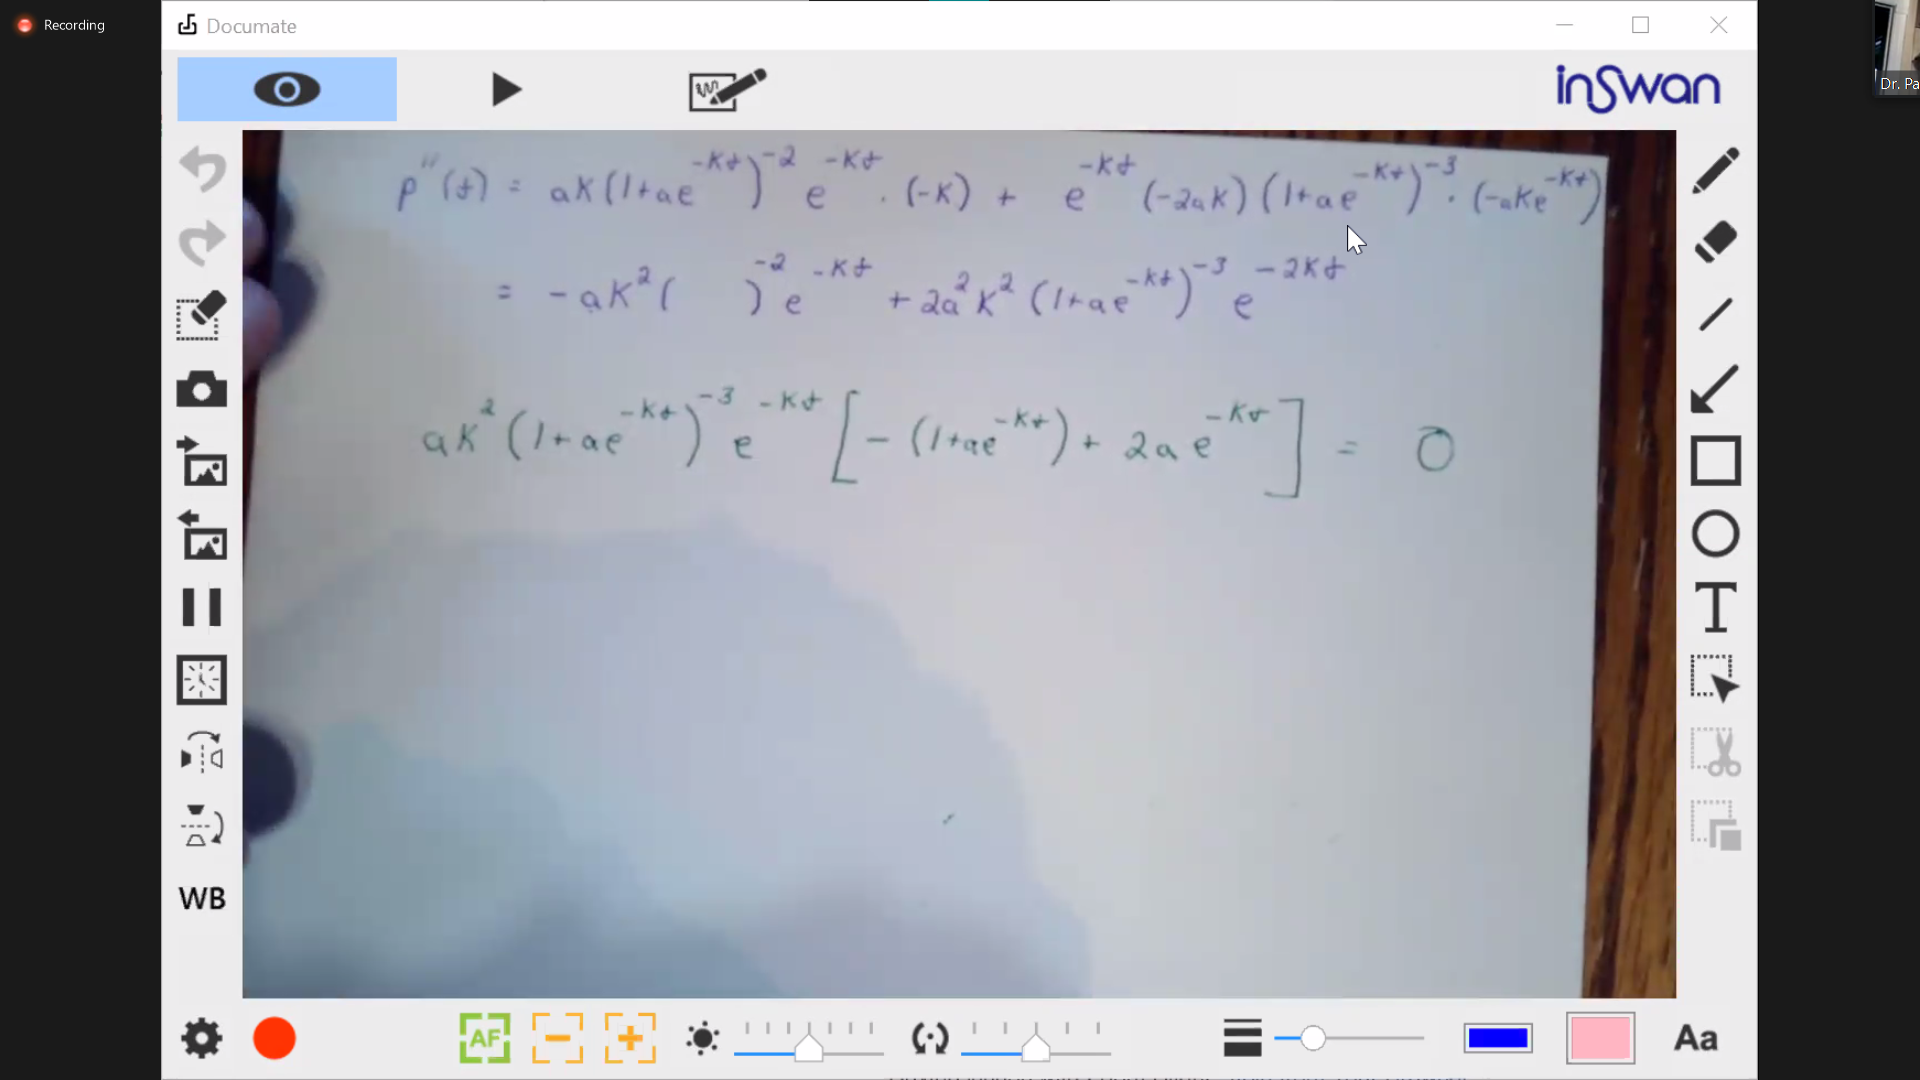 Recording
Documate
inSwan
Dr. Pa
p''(t) = ak(1+ae^{-kt})^{-2} e^{-kt} · (-k) + e^{-kt} (-2ak)(1+ae^{-kt})^{-3} · (-ake^{-kt})
= -ak^2( )^{-2} e^{-kt} + 2a^2 k^2 (1+ae^{-kt})^{-3} e^{-2kt}
ak^2 (1+ae^{-kt})^{-3} e^{-kt} [-(1+ae^{-kt}) + 2ae^{-kt}] = 0
T
WB
AF
Aa